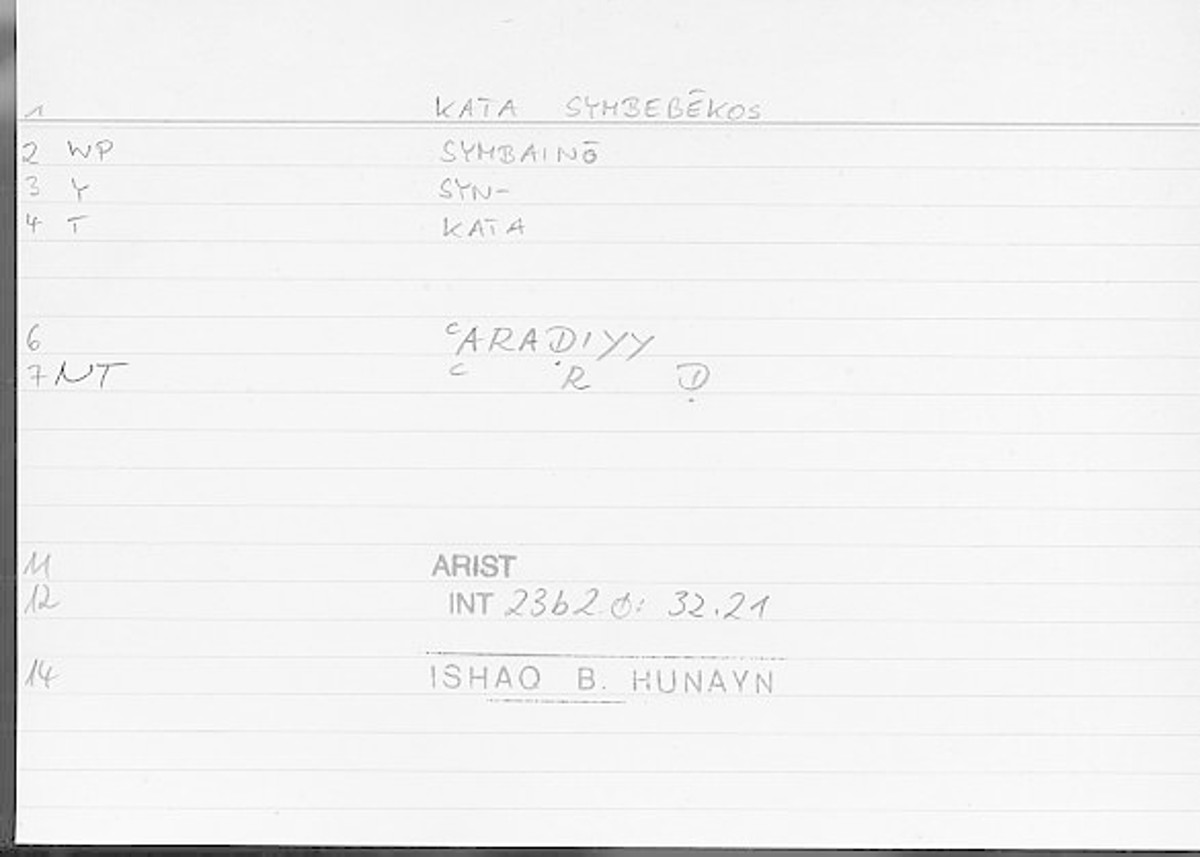 1 KATA SYMBEBĒKOS
2 WP SYMBAINŌ
3 Y SYN-
4 T KATA
6 ʿARADIYY
7 NT ʿ R Ḍ
11 ARIST
12 INT 23b2 : 32.21
14 ISHAQ B. HUNAYN